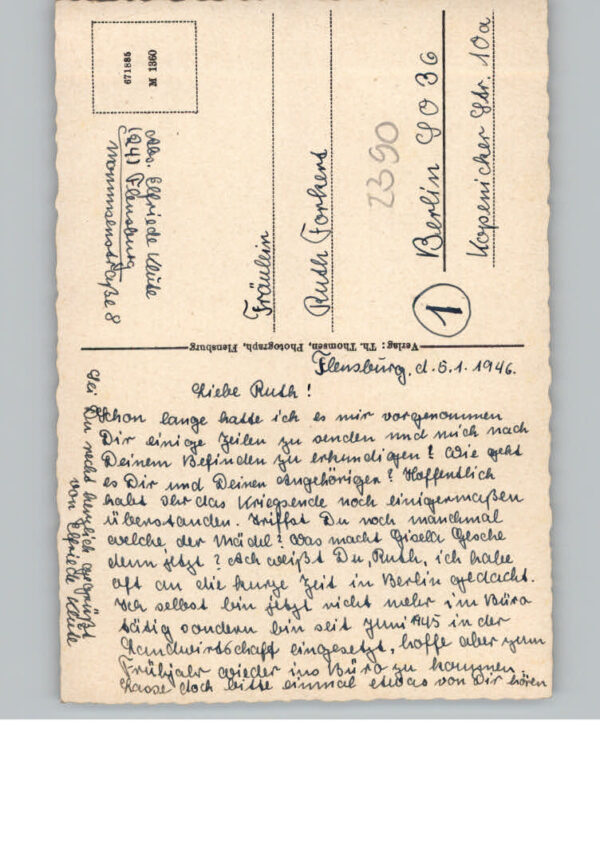 671885
M 1360
Abs. Elfriede Klüte
(24) Flensburg
Mommsenstraße 8
Fräulein
Ruth Forkert
2390
① Berlin SO 36
Köpenicker Str. 10a
Verlag: Th. Thomsen, Photograph, Flensburg
Flensburg, d. 5.1.1946.
Liebe Ruth!
Schon lange hatte ich es mir vorgenommen
Dir einige Zeilen zu senden und mich nach
Deinem Befinden zu erkundigen! Wie geht
es Dir und Deinen Angehörigen? Hoffentlich
habt Ihr das Kriegsende noch einigermaßen
überstanden. Triffst Du noch manchmal
welche der Mädel? Was macht Gisela Gesche
denn jetzt? Ach weißt Du, Ruth, ich habe
oft an die kurze Zeit in Berlin gedacht.
Ich selbst bin jetzt nicht mehr im Büro
tätig sondern bin seit Juni 1945 in der
Landwirtschaft eingesetzt, hoffe aber zum
Frühjahr wieder ins Büro zu kommen.
Lasse doch bitte einmal etwas von Dir hören
Sei Du recht herzlich gegrüßt
von Elfriede Klüte